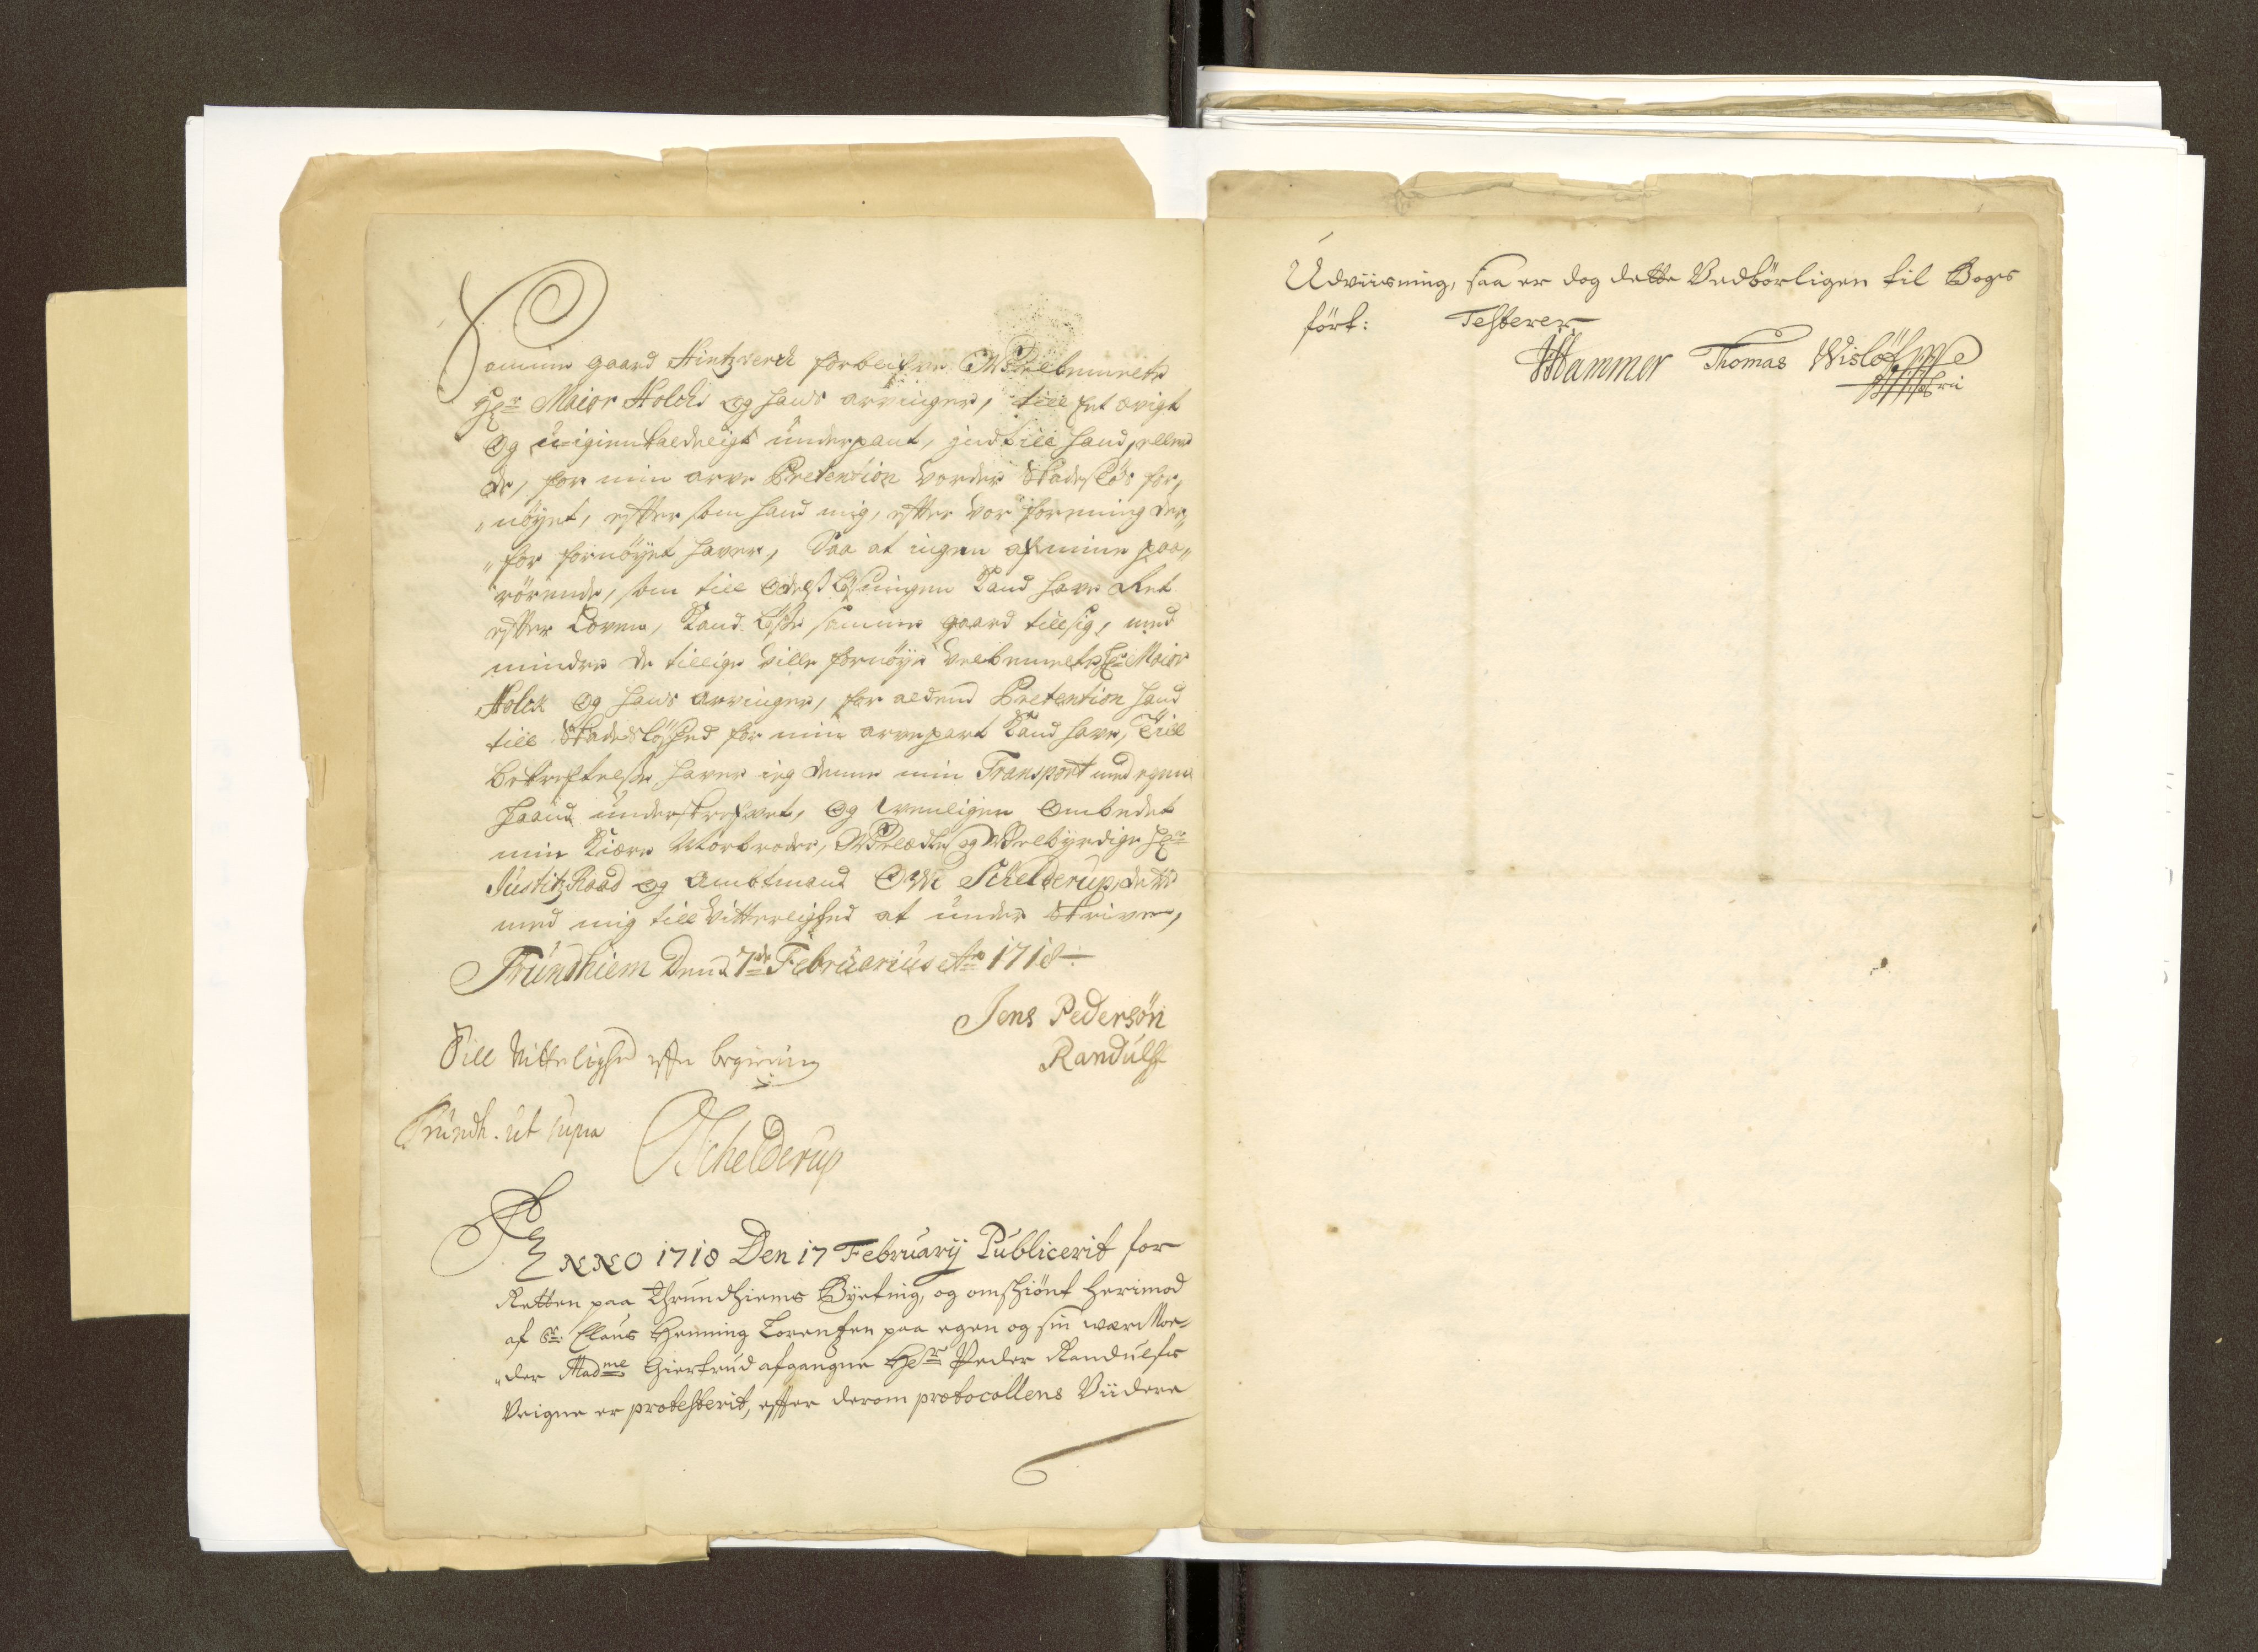 Samme gaard Hintzverck forblifve Welbemeelte
Hr: Maior Holck og hans arvinger, till fri ævigt
og u-igienkaldeligt underpant, indtill hand, eller
de, for min arve Pretention vorder Skadesløs for,
"nöyet, effter som hand mig, effter vor forening der,,
"for fornöyet haver, Saa at ingen af mine paa,,
rörende, som till odels Løsningen Kand have Ret
effter Loven, Kand løse samme gaard till sig, med
mindre de tillige ville fornöye velbemeelte Hr: Maior
Holck og hans arvinger, for aldend Pretention hand
till Skadeslösshed for min arvepart Kand have, Till
bekrefftelse haver ieg denne min Transport med egen
haand underskrefvet, og venligen ombedet
min Kiære Morbroder, Welædle og Welbyrdige Hr:
Justitz Raad og Ambtmand Ove Schelderup, dette
med mig till Vitterlighed at underskrive,
Trundhiem Dend 7de Februarius Ao 1718
Jens Pedersön
Randulff
Till Vitterlighed effter begiering
Trundh. ut supra
OSchelderup
ANNO 1718 Den 17 Februarij Publicerit for
Retten paa Thrundhiems Byeting, og omskiönt herimod
af Sr. Claus Henning Lorentzen paa egen og sin wær Moe,,
"der Madme Giertrud afgangne Hr Peder Randulfs
Veigne er protesterit, efter derom protocollens Viidere
Udviisning, saa er dog dette Vedbörligen til Bogs
fört: Testerer
Hammer Thomas Wislöff